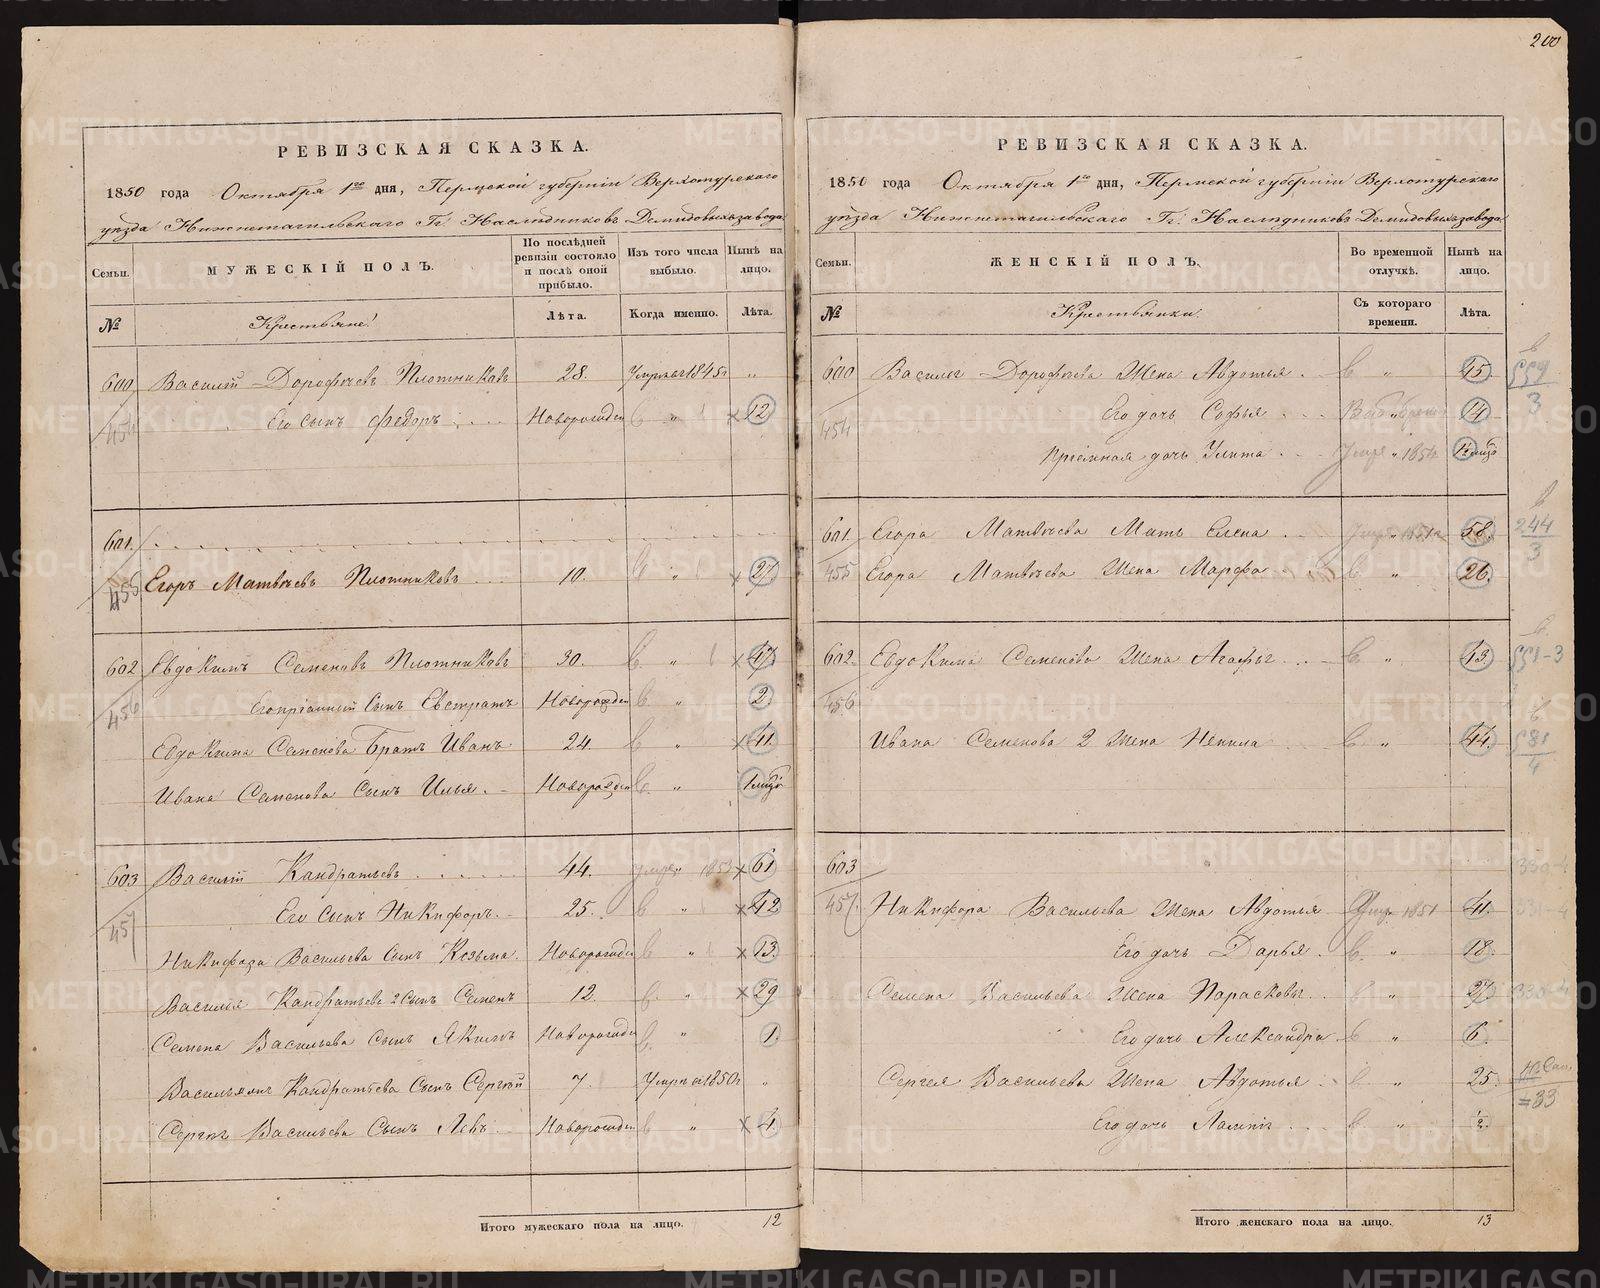 200
РЕВИЗСКАЯ СКАЗКА.
1850 года Октября 1го дня, Пермской губернiи Верхотурскаго
уѣзда Нижнетагильскаго Гг. Наслѣдниковъ Демидовыхъ завода
Семьи.
МУЖЕСКІЙ ПОЛЪ.
По послѣдней ревизіи состояло и послѣ оной прибыло.
Изъ того числа выбыло.
Нынѣ на лицо.
№
Крестьяне
Лѣта.
Когда именно.
Лѣта.
600 Василiй Дорофѣевъ Плотниковъ 28. Умръ въ 1845г „
454 Его сынъ Федоръ Новорожден „ 12
601.
455 Егоръ Матвѣевъ Плотниковъ 10. „ 27
602 Евдокимъ Семеновъ Плотниковъ 30. „ 47
456 Его прiемный сынъ Евстратъ Новорожден „ 2
Евдокима Семенова Братъ Иванъ 24. „ 41
Ивана Семенова Сынъ Илья. Новорожден „ 1
603 Василiй Кандратьевъ 44. Умре 1853 61
457 Его сынъ Никифоръ. 25. „ 42
Никифора Васильева Сынъ Козьма. Новорожден „ 13
Василья Кандратьева 2 Сынъ Семенъ 12. „ 29
Семена Васильева сынъ Якимъ Новорожден „ 1.
Кандратьева Сынъ Сергѣй 7. Умръ въ 1850г „
Сергѣя Васильева Сынъ Левъ Новорожден „ 4
Итого мужескаго пола на лицо. 12
РЕВИЗСКАЯ СКАЗКА.
1850 года Октября 1го дня, Пермской губернiи Верхотурскаго
уѣзда Нижнетагильскаго Гг. Наслѣдниковъ Демидовыхъ завода
Семьи.
ЖЕНСКІЙ ПОЛЪ.
Во временной отлучкѣ.
Нынѣ на лицо.
№
Крестьянки
Съ котораго времени.
Лѣта.
600 Василья Дорофѣева Жена Авдотья „ 45
454 Его дочь Софья „ 14
Прiемная дочь Улита Умре „ 1854
601 Егора Матвѣева Мать Елена „ 1851 58.
455 Егора Матвѣева Жена Марфа „ 26.
602. Евдокима Семенова Жена Агафья „ 43
456
Ивана Семенова 2 Жена Ненила „ 44
603
457. Никифора Васильева Жена Авдотья 1851 41.
Его дочь Дарья. „ 18
Семена Васильева Жена Парасковья „ 27
Его дочь Александра „ 6
Сергея Васильева Жена Авдотья „ 25
Его дочь „ ½
Итого женскаго пола на лицо. 13
244
3
METRIKI.GASO-URAL.RU